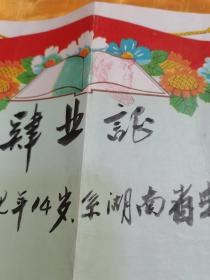 肄业証
年14岁系湖南省